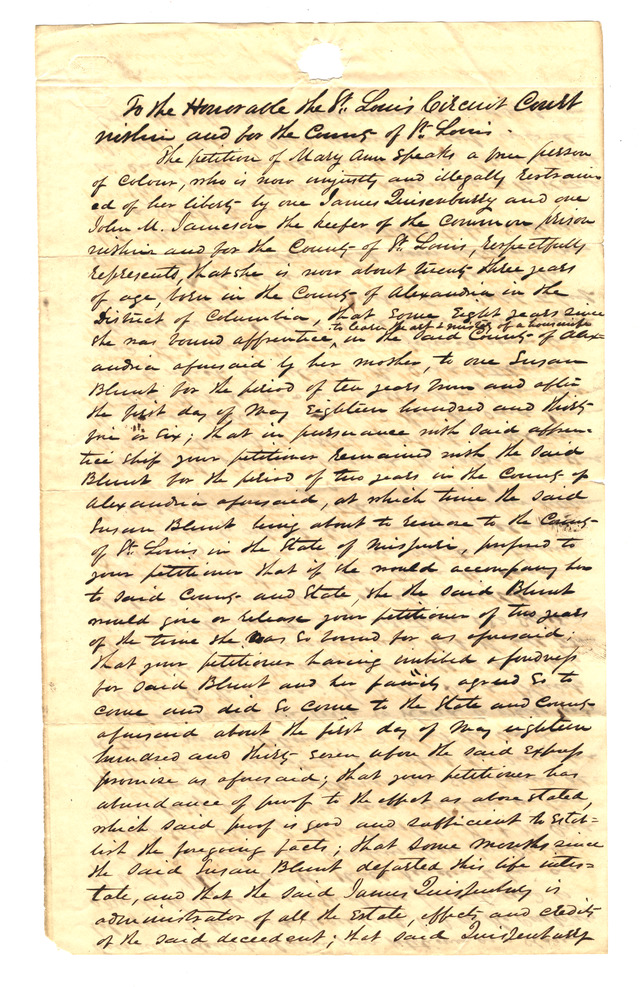 To the Honorable the St. Louis Circuit Court
within and for the County of St. Louis.
The petition of Mary Ann Speaks a free person
of colour, who is now unjustly and illegally restrain
ed of her liberty by one James Quisenburry and one
John M. Jameson the keeper of the common prison
within and for the County of St. Louis, respectfully
represents, that she is now about twenty three years
of age, born in the County of Alexandria in the
District of Columbia, that some Eight years since
she was bound apprentice, to learn the art & mistery of a housewife in the said County of Alex-
andria aforesaid by her mother, to one Susan
Blunt for the period of ten years from and after
the first day of May Eighteen hundred and thirty
five or six; that in pursuance with said appren-
tice ship your petitioner remained with the said
Blunt for the period of two years in the County of
Alexandria aforesaid, at which time the said
Susan Blunt being about to remove to the County
of St. Louis in the State of Missouri, proposed to
your petitioner that if she would accompany her
to said County and State, she the said Blunt
would give or release your petitioner of two years
of the time she was so bound for as aforesaid;
that your petitioner having imbibed a fondness
for said Blunt and her family agreed so to
come and did so come to the State and County
aforesaid about the first day of May eighteen
hundred and thirty seven upon the said express
promise as aforesaid; that your petitioner has
abundance of proof to the effect as above stated,
which said proof is good and sufficient to estab-
lish the foregoing facts; that some months since
the said Susan Blunt departed this life intes-
tate, and that the said James Quisenburry is
administrator of all the Estate, effects and credits
of the said deceedent; that said Quisenburry